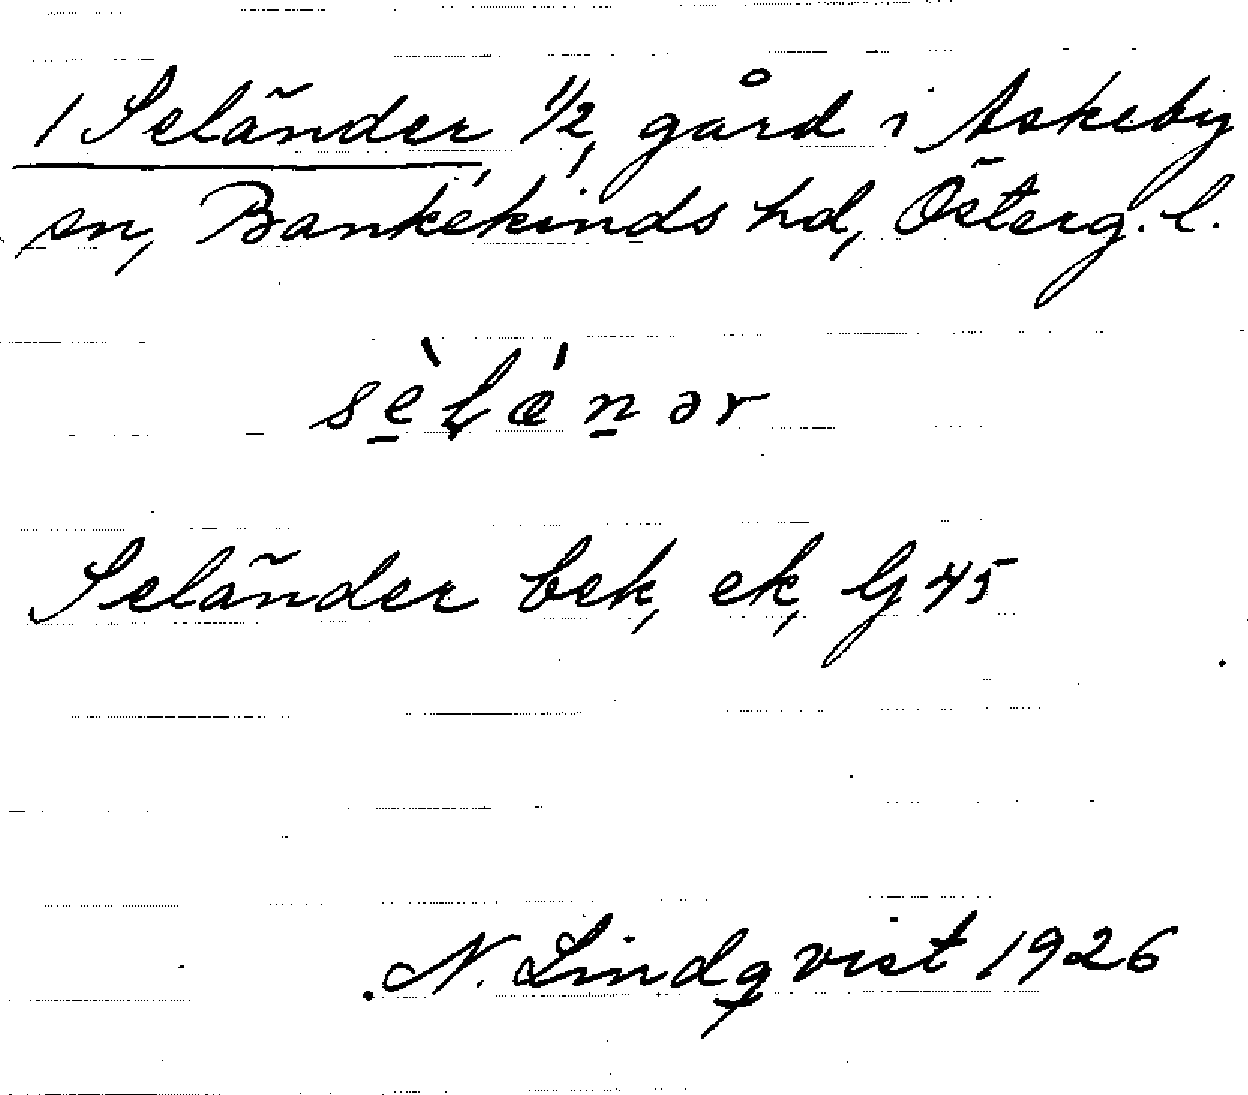 1 Seländer, 1/2, gård i Askeby
sn, Bankekinds hd, Österg. l.
sèlǽnər
Seländer bek, ek, G 45
N. Lindqvist 1926